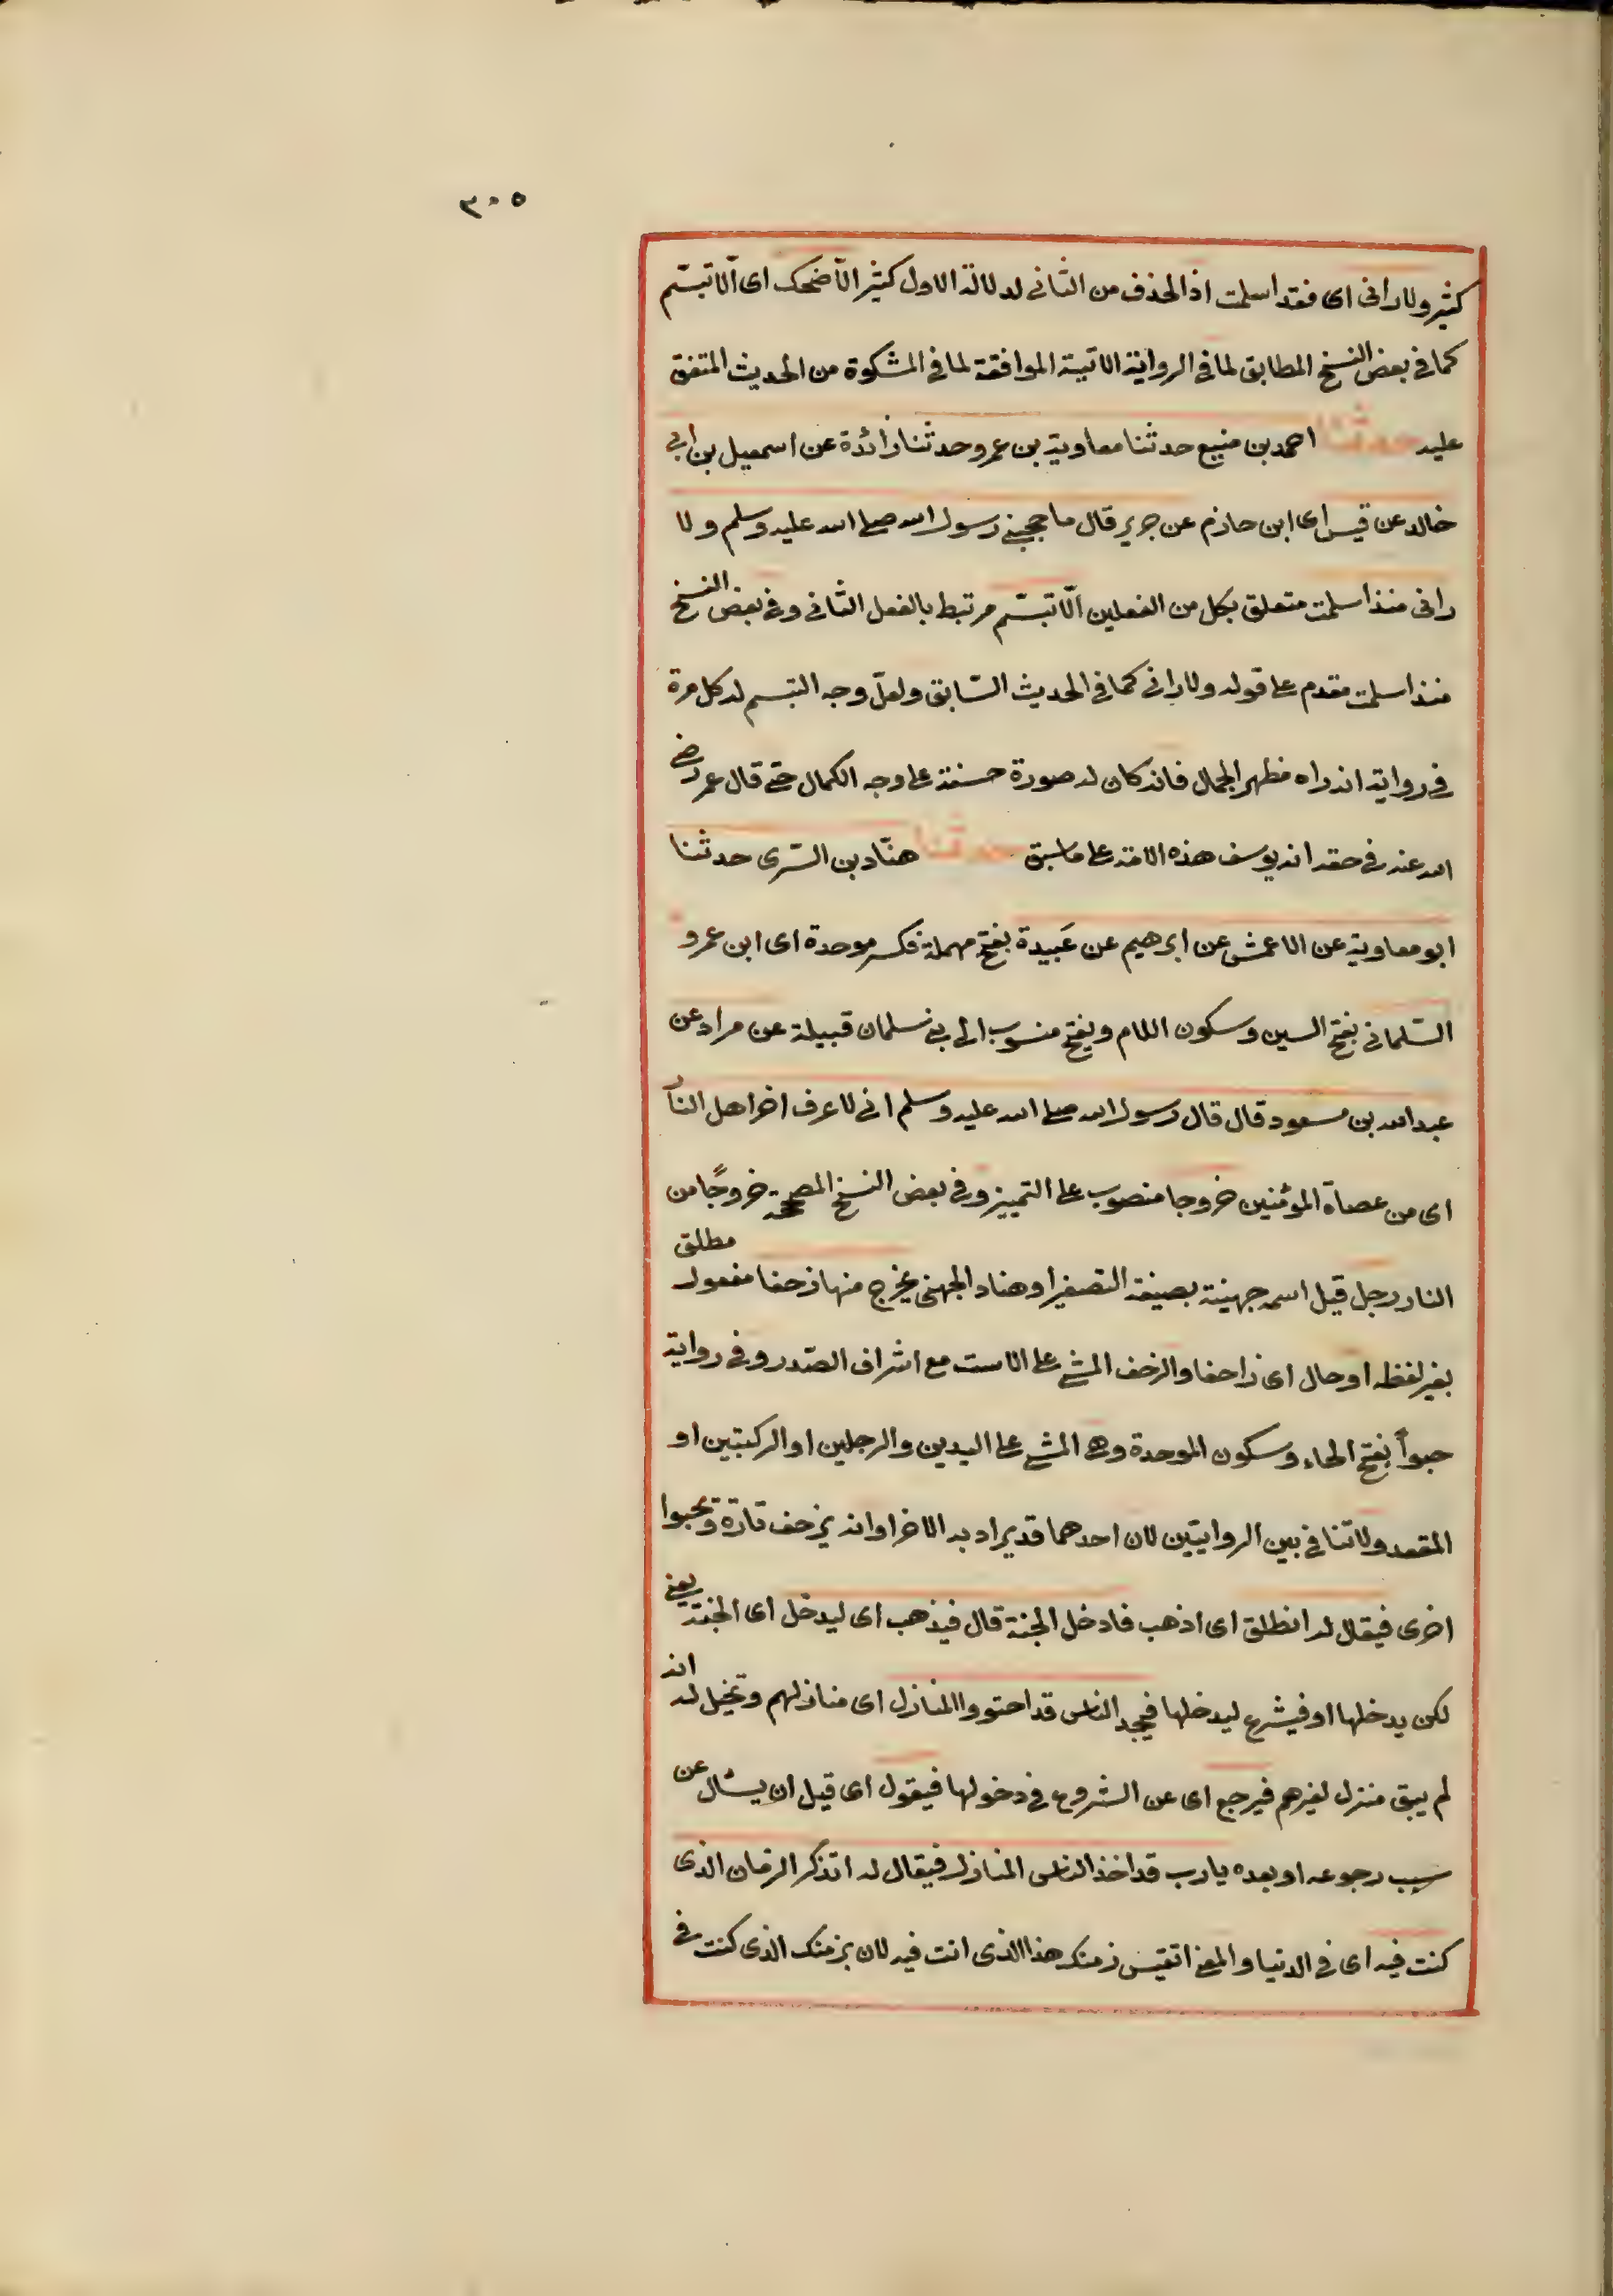 ٣٠٥
كثير ولا رانى اى فقد اسلمت اذ الحذف من الثانى لدلالة الاول كثير الّا ضحك اى الّا تبسّم
كما فى بعض النسخ المطابق لما فى الرواية الاتية الموافقة لما فى المشكوة من الحديث المتفق
عليه حدثنا احمد بن منيع حدثنا معاوية بن عمرو حدثنا زائدة عن اسمعيل بن ابى
خالد عن قيس اى ابن حازم عن جرير قال ما حجبنى رسول الله صلى الله عليه وسلم ولا
رانى منذ اسلمت متعلق بكل من الفعلين الّا تبسّم مرتبط بالفعل الثانى وفى بعض النسخ
منذ اسلمت مقدم على قوله ولا رانى كما فى الحديث السّابق ولعلّ وجه التبسم له كل مرة
فى رواية انه راه مظهر الجمال فانه كان له صورة حسنة على وجه الكمال حتى قال عمر رضى
الله عنه فى حقه انه يوسف هذه الامة على ما سبق حدثنا هنّاد بن السّرى حدثنا
ابو معاوية عن الاعمش عن ابرهيم عن عَبيدة بفتح مهملة فكسر موحدة اى ابن عمرو
السّلمانى بفتح السين وسكون اللام ويفتح منسوب الى بنى سلمان قبيلة عن مراد عن
عبد الله بن مسعود قال قال رسول الله صلى الله عليه وسلم انى لاعرف اخر اهل النار
اى من عصاة المؤمنين خروجا منصوب على التمييز وفى بعض النسخ المصححة خروجًا من
النار رجل قيل اسمه جهينة بصيغة التصغير او هناد الجهنى يخرج منها زحفا مفعول مطلق
بغير لفظه او حال اى زاحفا والزحف المشى على الاست مع اشراف الصّدر وفى رواية
حبواً بفتح الحاء وسكون الموحدة وهى المشى على اليدين والرجلين او الركبتين او
المقعد ولا تنافى بين الروايتين لان احدهما قد يراد به الاخر او انه يزحف تارة ويحبوا
اخرى فيقال له انطلق اى اذهب فادخل الجنة قال فيذهب اى ليدخل اى الجنة يعنى
لكن يدخلها او فيشرع ليدخلها فيجد الناس قد احتووا المنازل اى منازلهم وتخيل له انه
لم يبق منزل لغيرهم فيرجع اى عن الشروع فى دخولها فيقول اى قبل ان يسال عن
سبب رجوعه او بعده يا رب قد اخذ الناس المنازل فيقال له اتذكر الزمان الذى
كنت فيه اى فى الدنيا والمعنى اتقيس زمنك هذا الذى انت فيه لان بزمنك الذى كنت فى